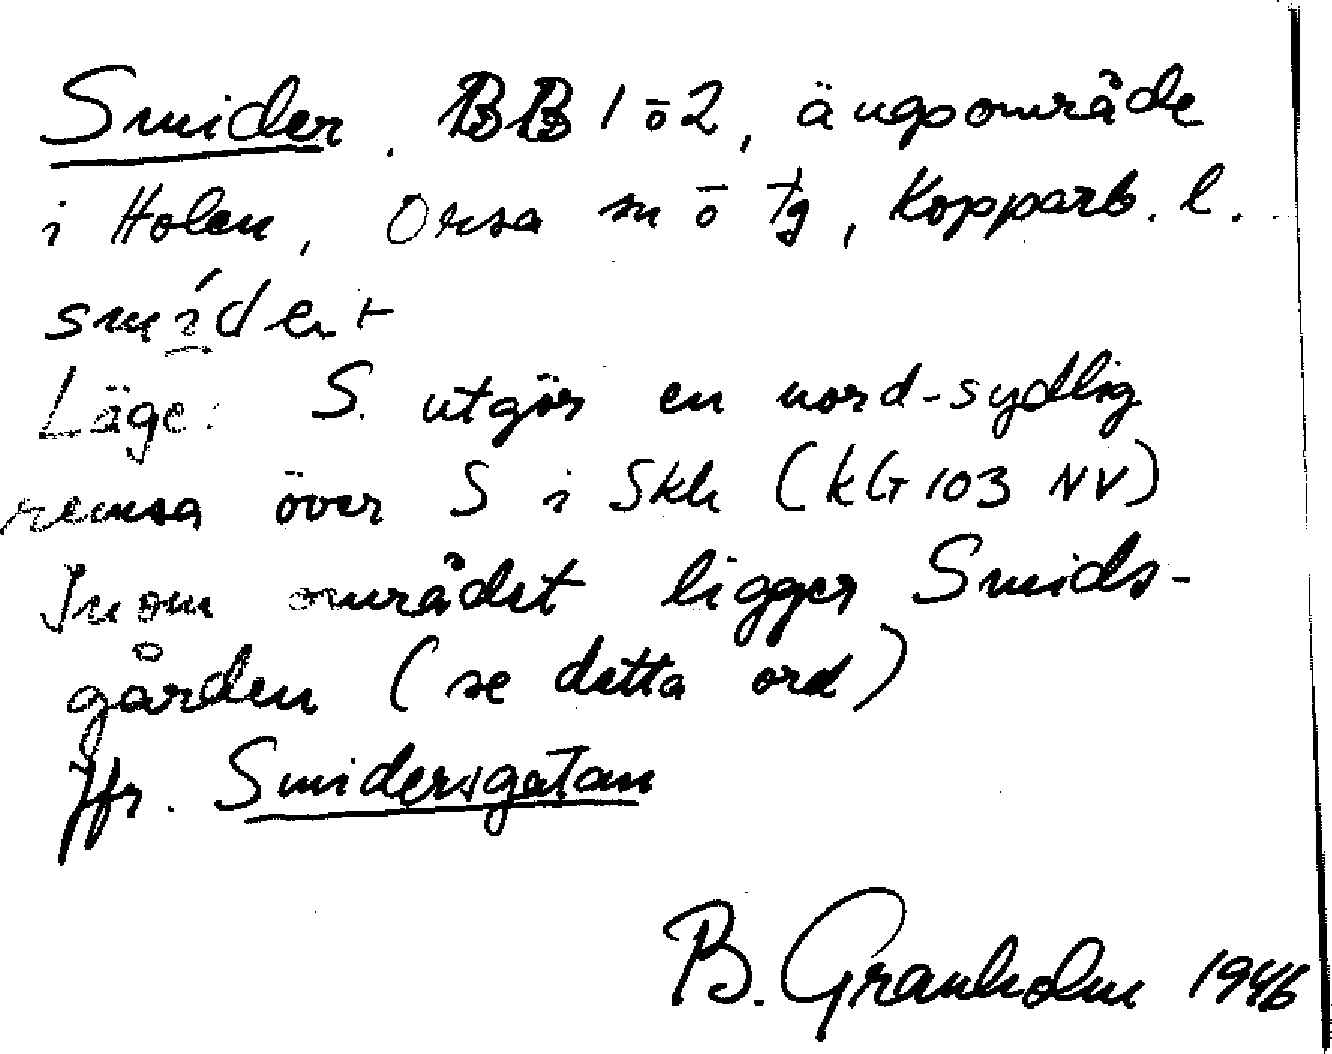 Smider. BB 1 ō 2, ängsområde
i Holen, Orsa sn ō tg, Kopparb. l.
smídèr
Läge: S. utgör en nord-sydlig
remsa över S i Skh (kG 103 NV)
Inom området ligger Smids-
gården (se detta ord)
Jfr. Smidersgatan
B. Granholm 1946